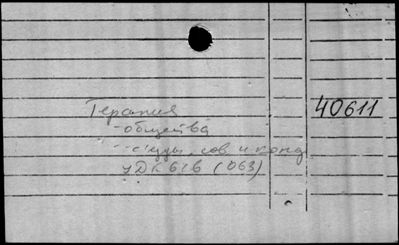 Терапия 40611
- общества
- съезды, сов. и конф.
УДК 616 (063)